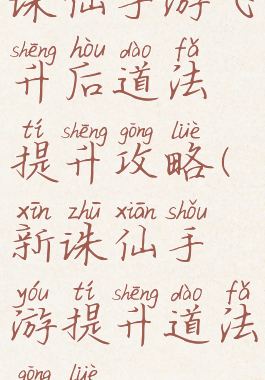 诛仙手游飞
shēng hòu dào fǎ
升后道法
tí shēng gōng lüè
提升攻略(
xīn zhū xiān shǒu
新诛仙手
yóu tí shēng dào fǎ
游提升道法
gōng lüè